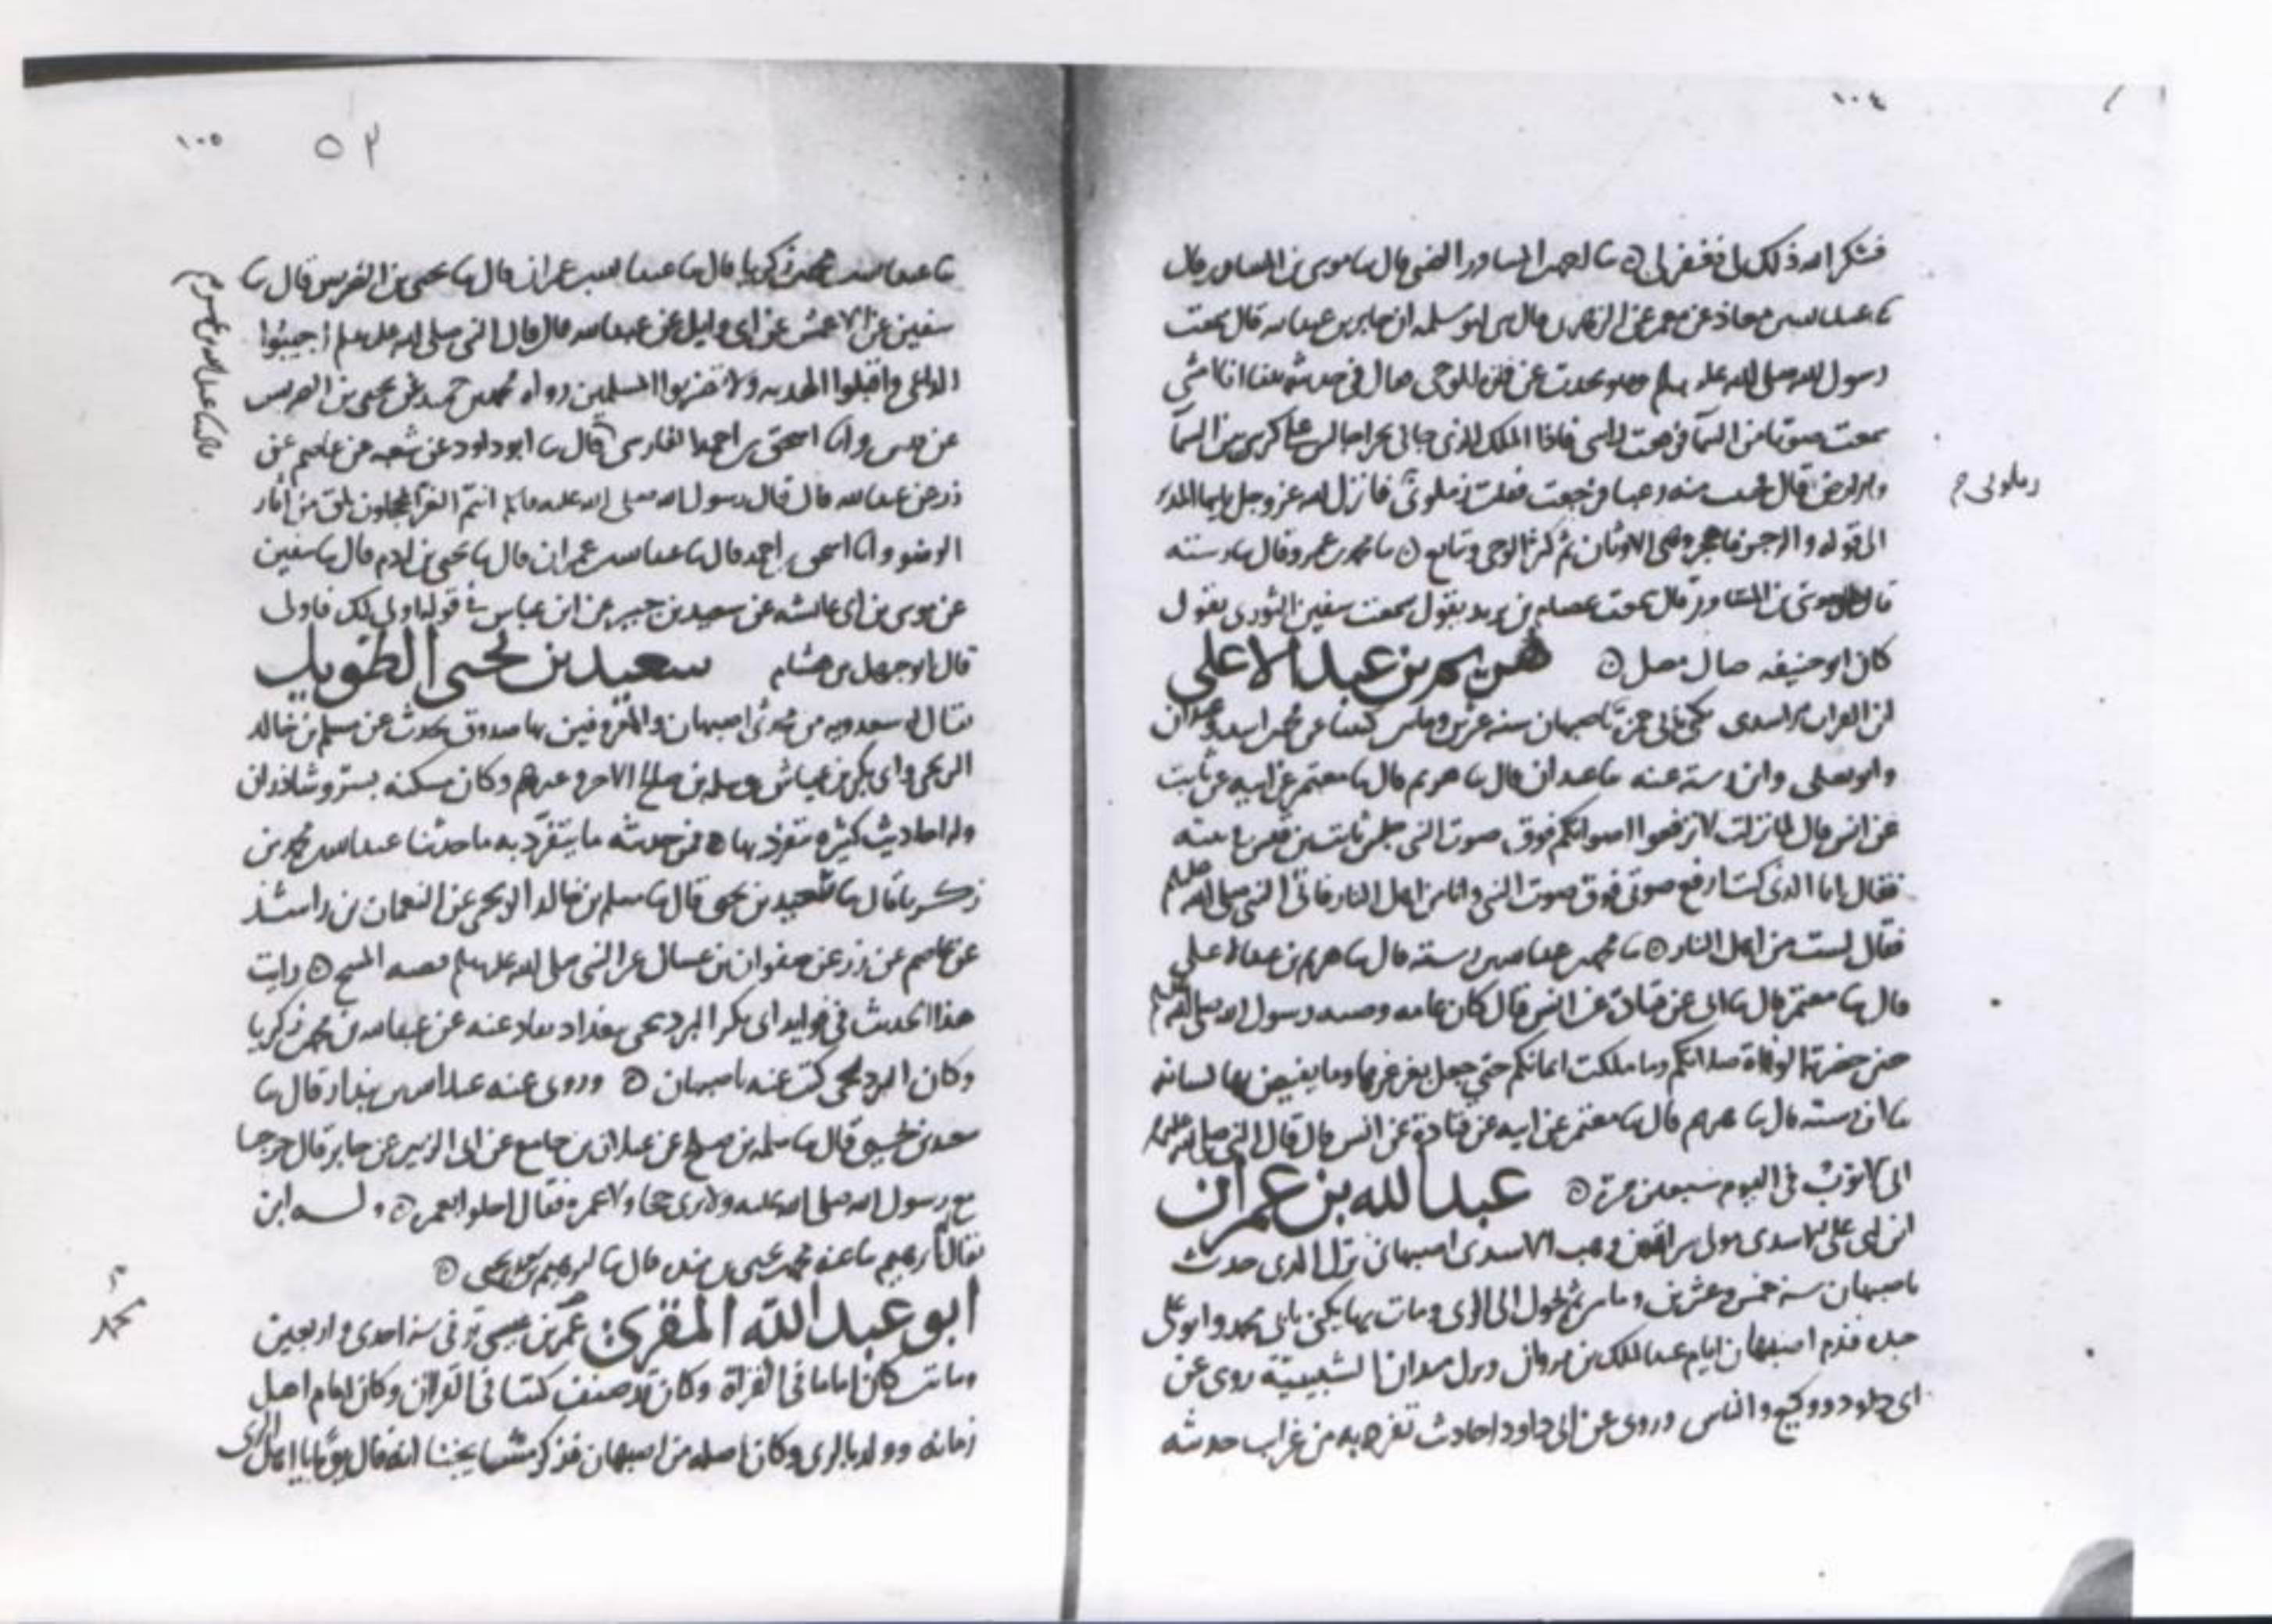 ١٠٤
فشكر الله ذلك لى فغفر لى نا المساور الضبى قال نا موسى بن المساور قال
نا عبد الله بن معاذ عن معمر عن الزهرى قال ابو سلمه ان جابر بن عبد الله قال سمعت
رسول الله صلى الله عليه وسلم وهو يحدث عن فترة الوحى قال فى حديثه بينا انا امشى
سمعت صوتا من السمآ فرفعت راسى فاذا الملك الذى جانى بحرا جالس على كرسى بين السمآ
والارض قال منه رعبا فرجعت فقلت زملونى فانزل الله عز وجل يايها المدثر
زملونى م
الى قوله والرجز فاهجر وهى الاوثان ثم كثر الوحى وتتابع نا محمد بن عمر وقال نا رسته
قال موسى بن المساور قال سمعت عصام بن يزيد يقول سمعت سفين الثورى يقول
كان ابو حنيفه ضال مضل هريم بن عبد الاعلى
ابن الفرات الاسدى يكنى بابى حمزة باصبهان سنه عشرين ومايتين كتبنا عن
وابو يعلى وابن رسته عنه نا عبدان قال نا هريم قال نا معتمر عن ابيه عن ثابت
عن انس قال لما نزلت لا ترفعوا اصواتكم فوق صوت النبى جلس ثابت بن قيس فى بيته
فقال انا الذى كنت ارفع صوتى فوق صوت النبى وانا من اهل النار فاتى النبى صلى الله عليه
فقال لست من اهل النار نا محمد بن عبد الله بن رسته قال نا هريم بن عبد الاعلى
قال نا معتمر قال نا ابى عن قتادة عن انس قال كان عامه وصيه رسول الله صلى الله عليه
حين حضرته الوفاة صلاتكم وما ملكت ايمانكم حتى جعل يغرغر بها وما يفيض بها لسانه
نا ابن رسته قال نا هريم قال نا معتمر عن ابيه عن قتادة عن انس قال قال النبى صلى الله عليه
انى لا توب فى اليوم سبعين مرة عبد الله بن عمران
ابن ابى على الاسدى مولى سراقه بن وهب الاسدى اصبهانى نزل الرى حدث
باصبهان سنه خمس وعشرين ومايتين ثم تحول الى الرى ومات بها يكنى بابى محمد وابو على
جده قدم اصبهان ايام عبد الملك بن مروان ونزل ميدان الشبيبية روى عن
ابى داود ووكيع والناس وروى عن ابى داود احاديث تفرد به من غرايب حديثه
١٠٥
٥٢
نا عبد الله بن محمد بن زكريا قال نا عبد الله بن عمران قال نا يحيى بن الضريس قال نا
سفين عن الاعمش عن ابى وايل عن عبد الله قال قال النبى صلى الله عليه وسلم اجيبوا
الداعى واقبلوا الهديه ولا تضربوا المسلمين رواه محمد بن حميد عن يحيى بن الضريس
عن وانا اسحق بن احمد الفارسى قال نا ابو داود عن شعبه عن عاصم عن
زر عن عبد الله قال قال رسول الله صلى الله عليه وسلم انتم الغر المحجلون بلق من اثار
الوضو وانا اسحق بن احمد قال نا عبد الله بن عمران قال نا يحيى بن ادم قال نا سفين
عن موسى بن ابى عائشه عن سعيد بن جبير عن ابن عباس فى قوله اولى لك فاولى
قال ابو جهل بن هشام سعيد بن يحيى الطويل
يقال له سعدويه من محدثى اصبهان والمعروفين بها صدوق يحدث عن مسلم بن خالد
الزنجى وابى بكر بن عياش وسلمه بن صالح الاحمر وغيرهم وكان مسكنه
وله احاديث كثيرة يتفرد بها فمن حديثه ما يتفرد به ما حدثنا عبد الله بن محمد بن
زكريا قال نا سعيد بن يحيى قال نا مسلم بن خالد الزنجى عن النعمان بن راشد
عن عاصم عن زر عن صفوان بن عسال عن النبى صلى الله عليه وسلم قصه المسح رايت
هذا الحديث فى فوايد ابى بكر البرديجى ببغداد عنه عن عبد الله بن محمد بن زكريا
وكان البرديجى كتب عنه باصبهان وروى عنه عبد الله بن بندار قال نا
سعيد بن يحيى قال نا سلمه بن صالح عن بن جامع عن ابى الزبير عن جابر قال خرجنا
مع رسول الله صلى الله عليه ولا نرى حجا ولا عمرة فقال اجعلوا عمرة وله ابن
يقال له ابرهيم نا عنه محمد بن يحيى بن منده قال نا ابرهيم بن يحيى
ابو عبد الله المقرئ محمد بن عيسى توفى سنه احدى واربعين
محمد م
ومايتين كان اماما فى القراة وكان قد صنف كتبا فى القران وكان امام اهل
زمانه وولد بالرى وكان اصله من اصبهان فذكر مشايخنا انه قال يوما يا اهل الرى